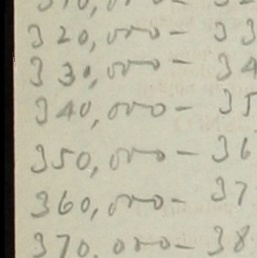 320,000 - 33
330,000 - 34
340,000 - 35
350,000 - 36
360,000 - 37
370,000 - 38